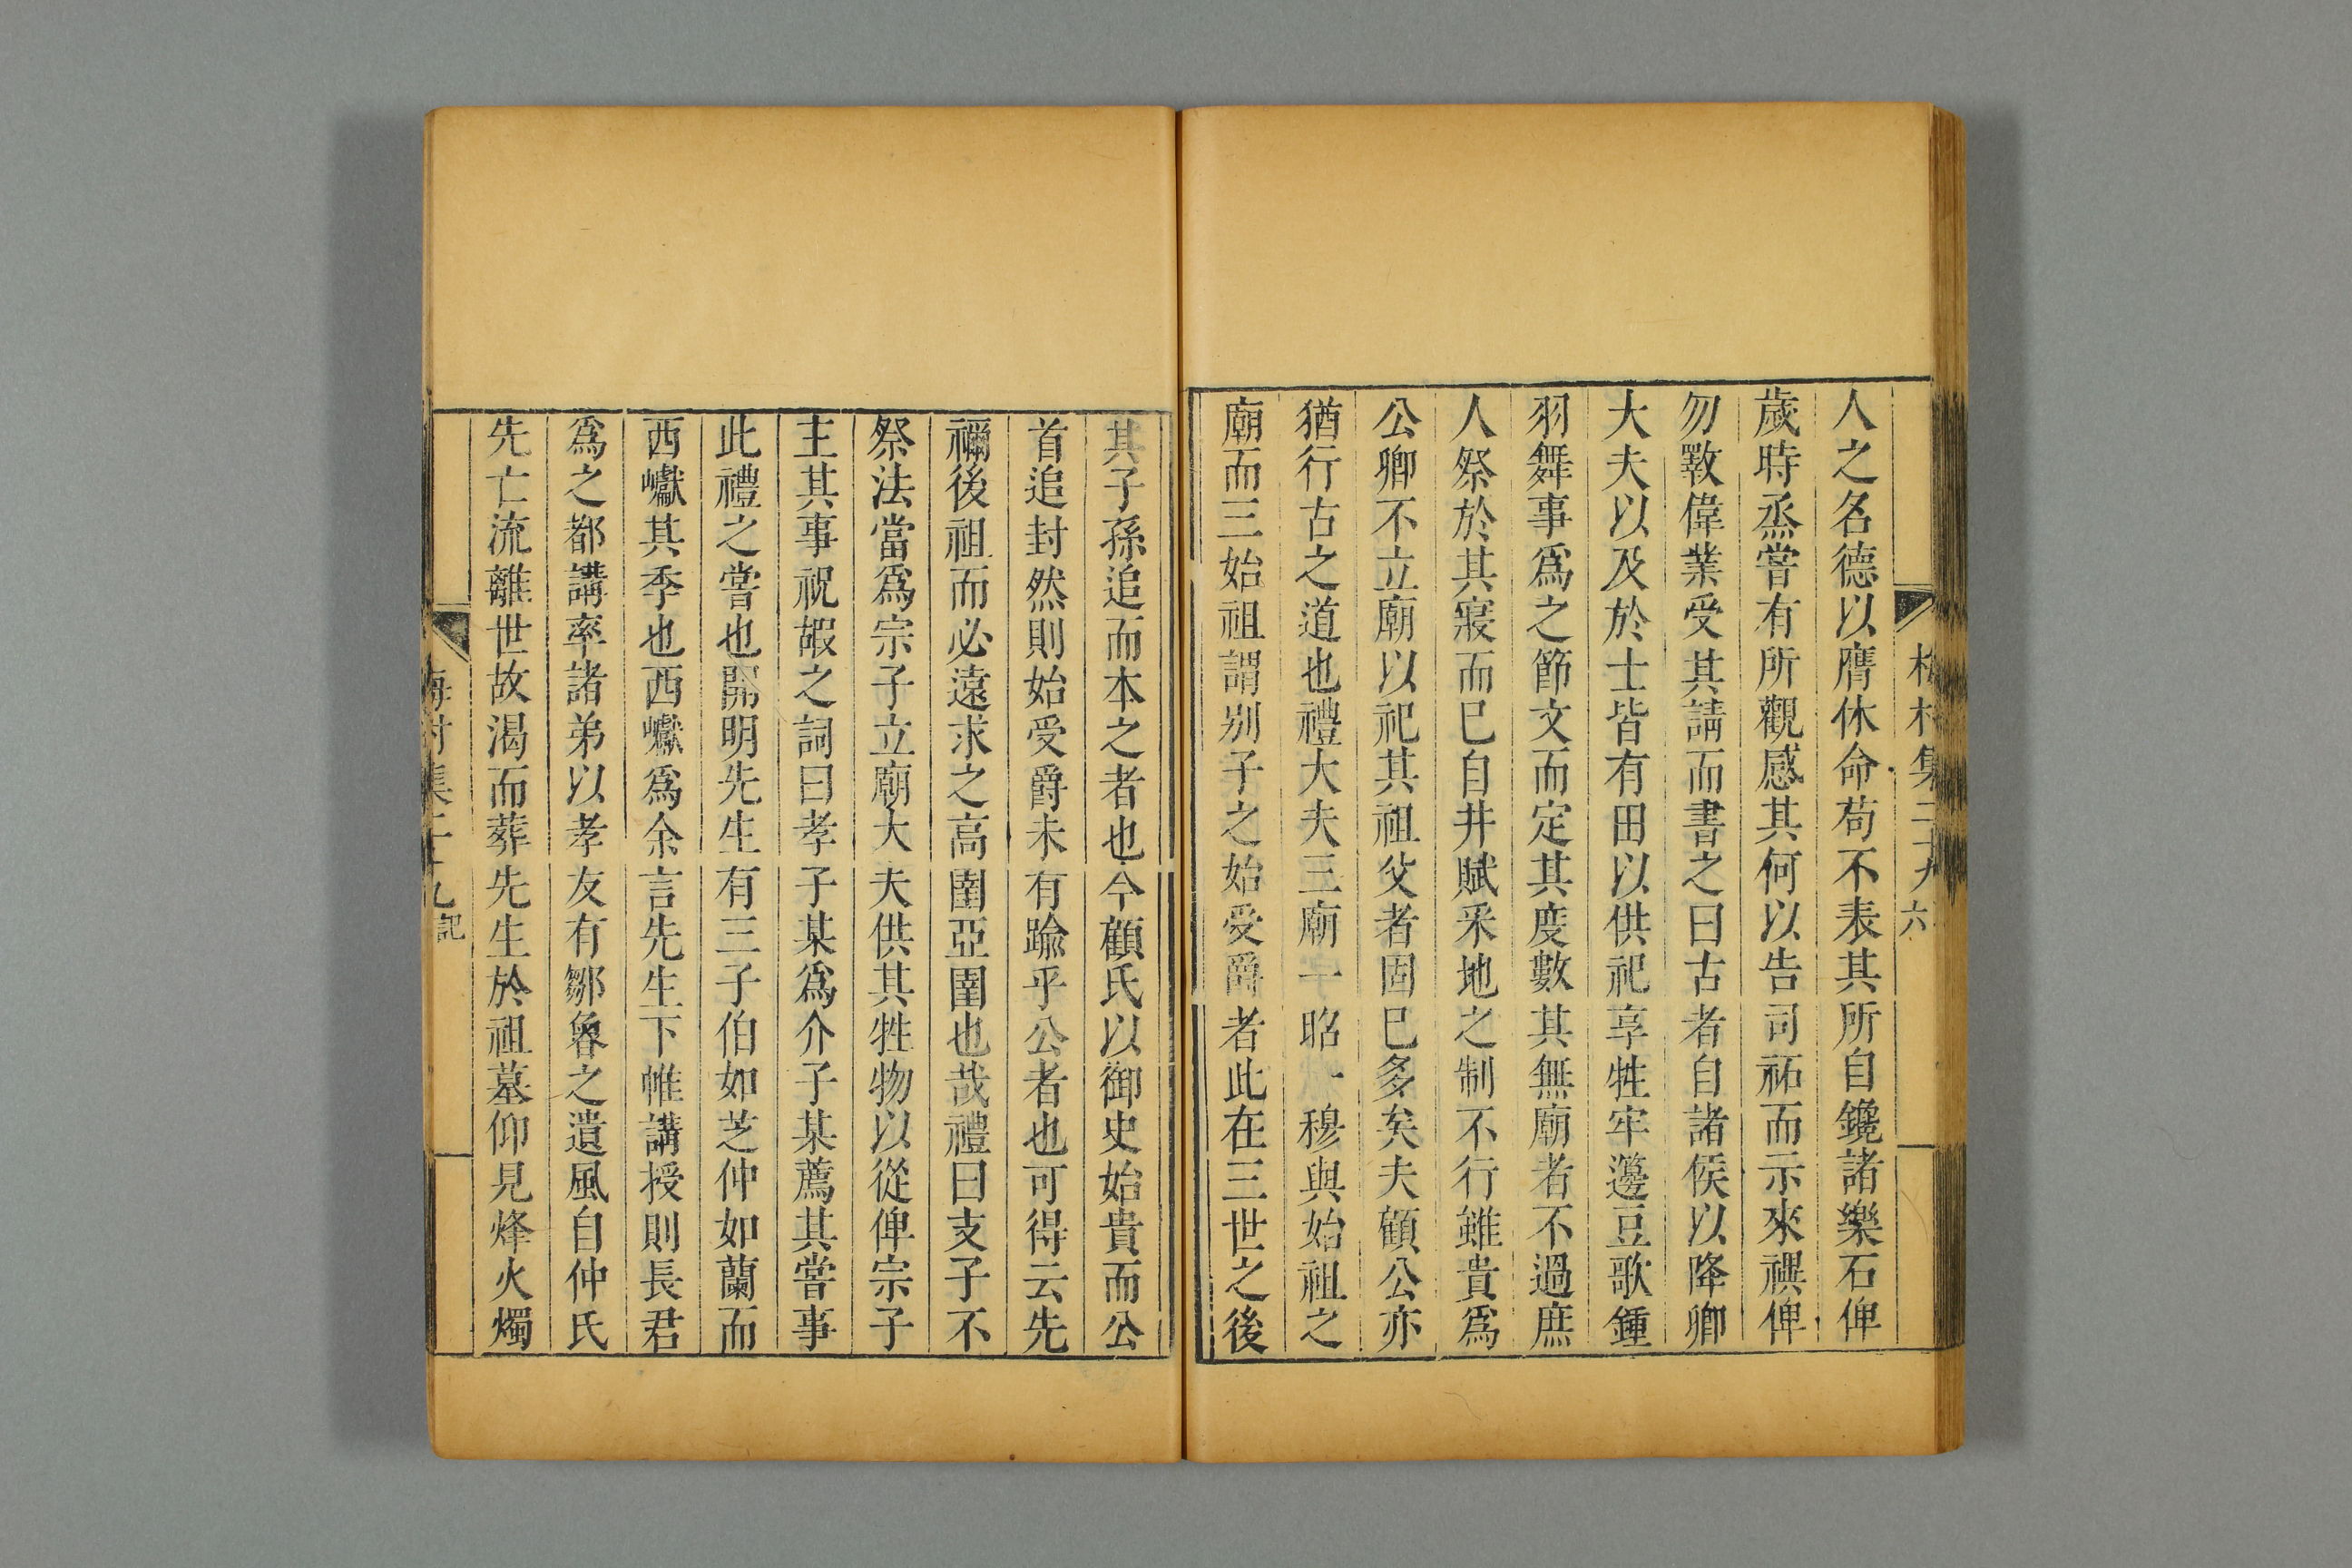 梅村集二十九 六
人之名德以膺休命苟不表其所自鑱諸樂石俾
歲時烝嘗有所觀感其何以告司祏而示來禩俾
勿斁偉業受其請而書之曰古者自諸侯以降卿
大夫以及於士皆有田以供祀享牲牢籩豆歌鍾
羽舞事爲之節文而定其度數其無廟者不過庶
人祭於其寢而巳自井賦采地之制不行雖貴爲
公卿不立廟以祀其祖父者固巳多矣夫顧公亦
猶行古之道也禮大夫三廟一昭一穆與始祖之
廟而三始祖謂别子之始受爵者此在三世之後
其子孫追而本之者也今顧氏以御史始貴而公
首追封然則始受爵未有踰乎公者也可得云先
禰後祖而必遠求之高圉亞圉也哉禮曰支子不
祭法當爲宗子立廟大夫供其牲物以從俾宗子
主其事祝嘏之詞曰孝子某爲介子某薦其嘗事
此禮之嘗也開明先生有三子伯如芝仲如蘭而
西巘其季也西巘爲余言先生下帷講授則長君
爲之都講率諸弟以孝友有鄒魯之遺風自仲氏
先亡流離世故渴而葬先生於祖墓仰見烽火燭
梅村集二十九記